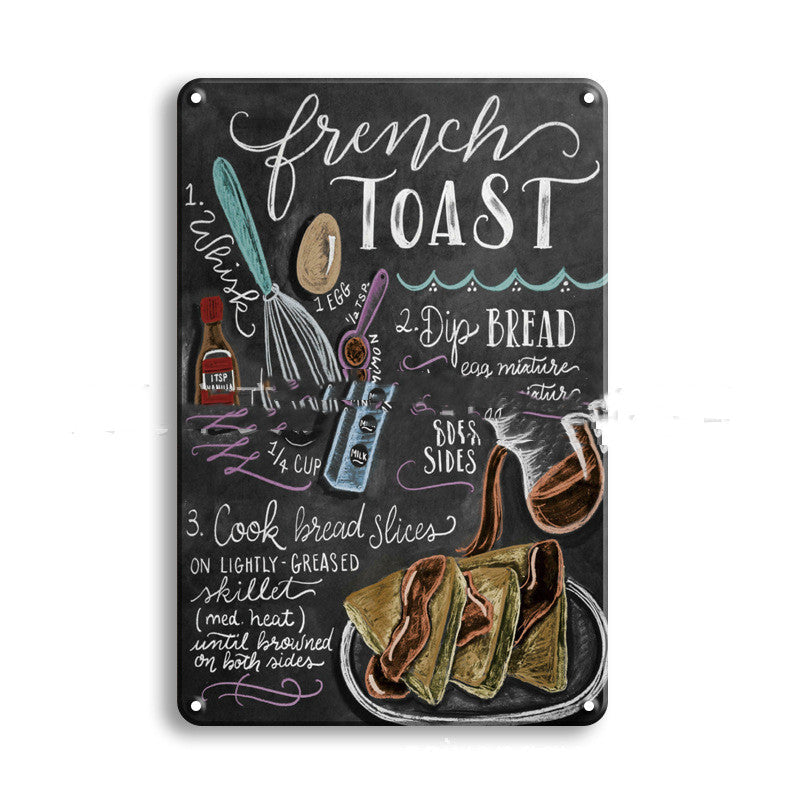 french
TOAST
1. Whisk
1 EGG
1/2 TSP.
1 TSP
VANILLA
1/4 CUP
MILK
2. Dip BREAD
egg mixture
SIDES
3. Cook bread slices
ON LIGHTLY-GREASED
skillet
(med. heat)
until browned
on both sides